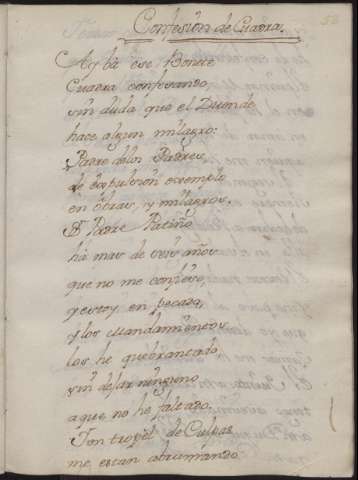 Confesion de Cuadra.
58
Cuadra confesando,
sin duda que el Duende
hace algun milagro:
Padre delos Padres,
de expulsion exemplo
en Obras, y milagros.
Padre Patiño
ha mas de seis años
que no me confieso,
y estoy en pecado,
y los mandamientos
los he quebrantado,
sin dejar ninguno
a que no he faltado.
tropèl de Culpas
me estan abrumando